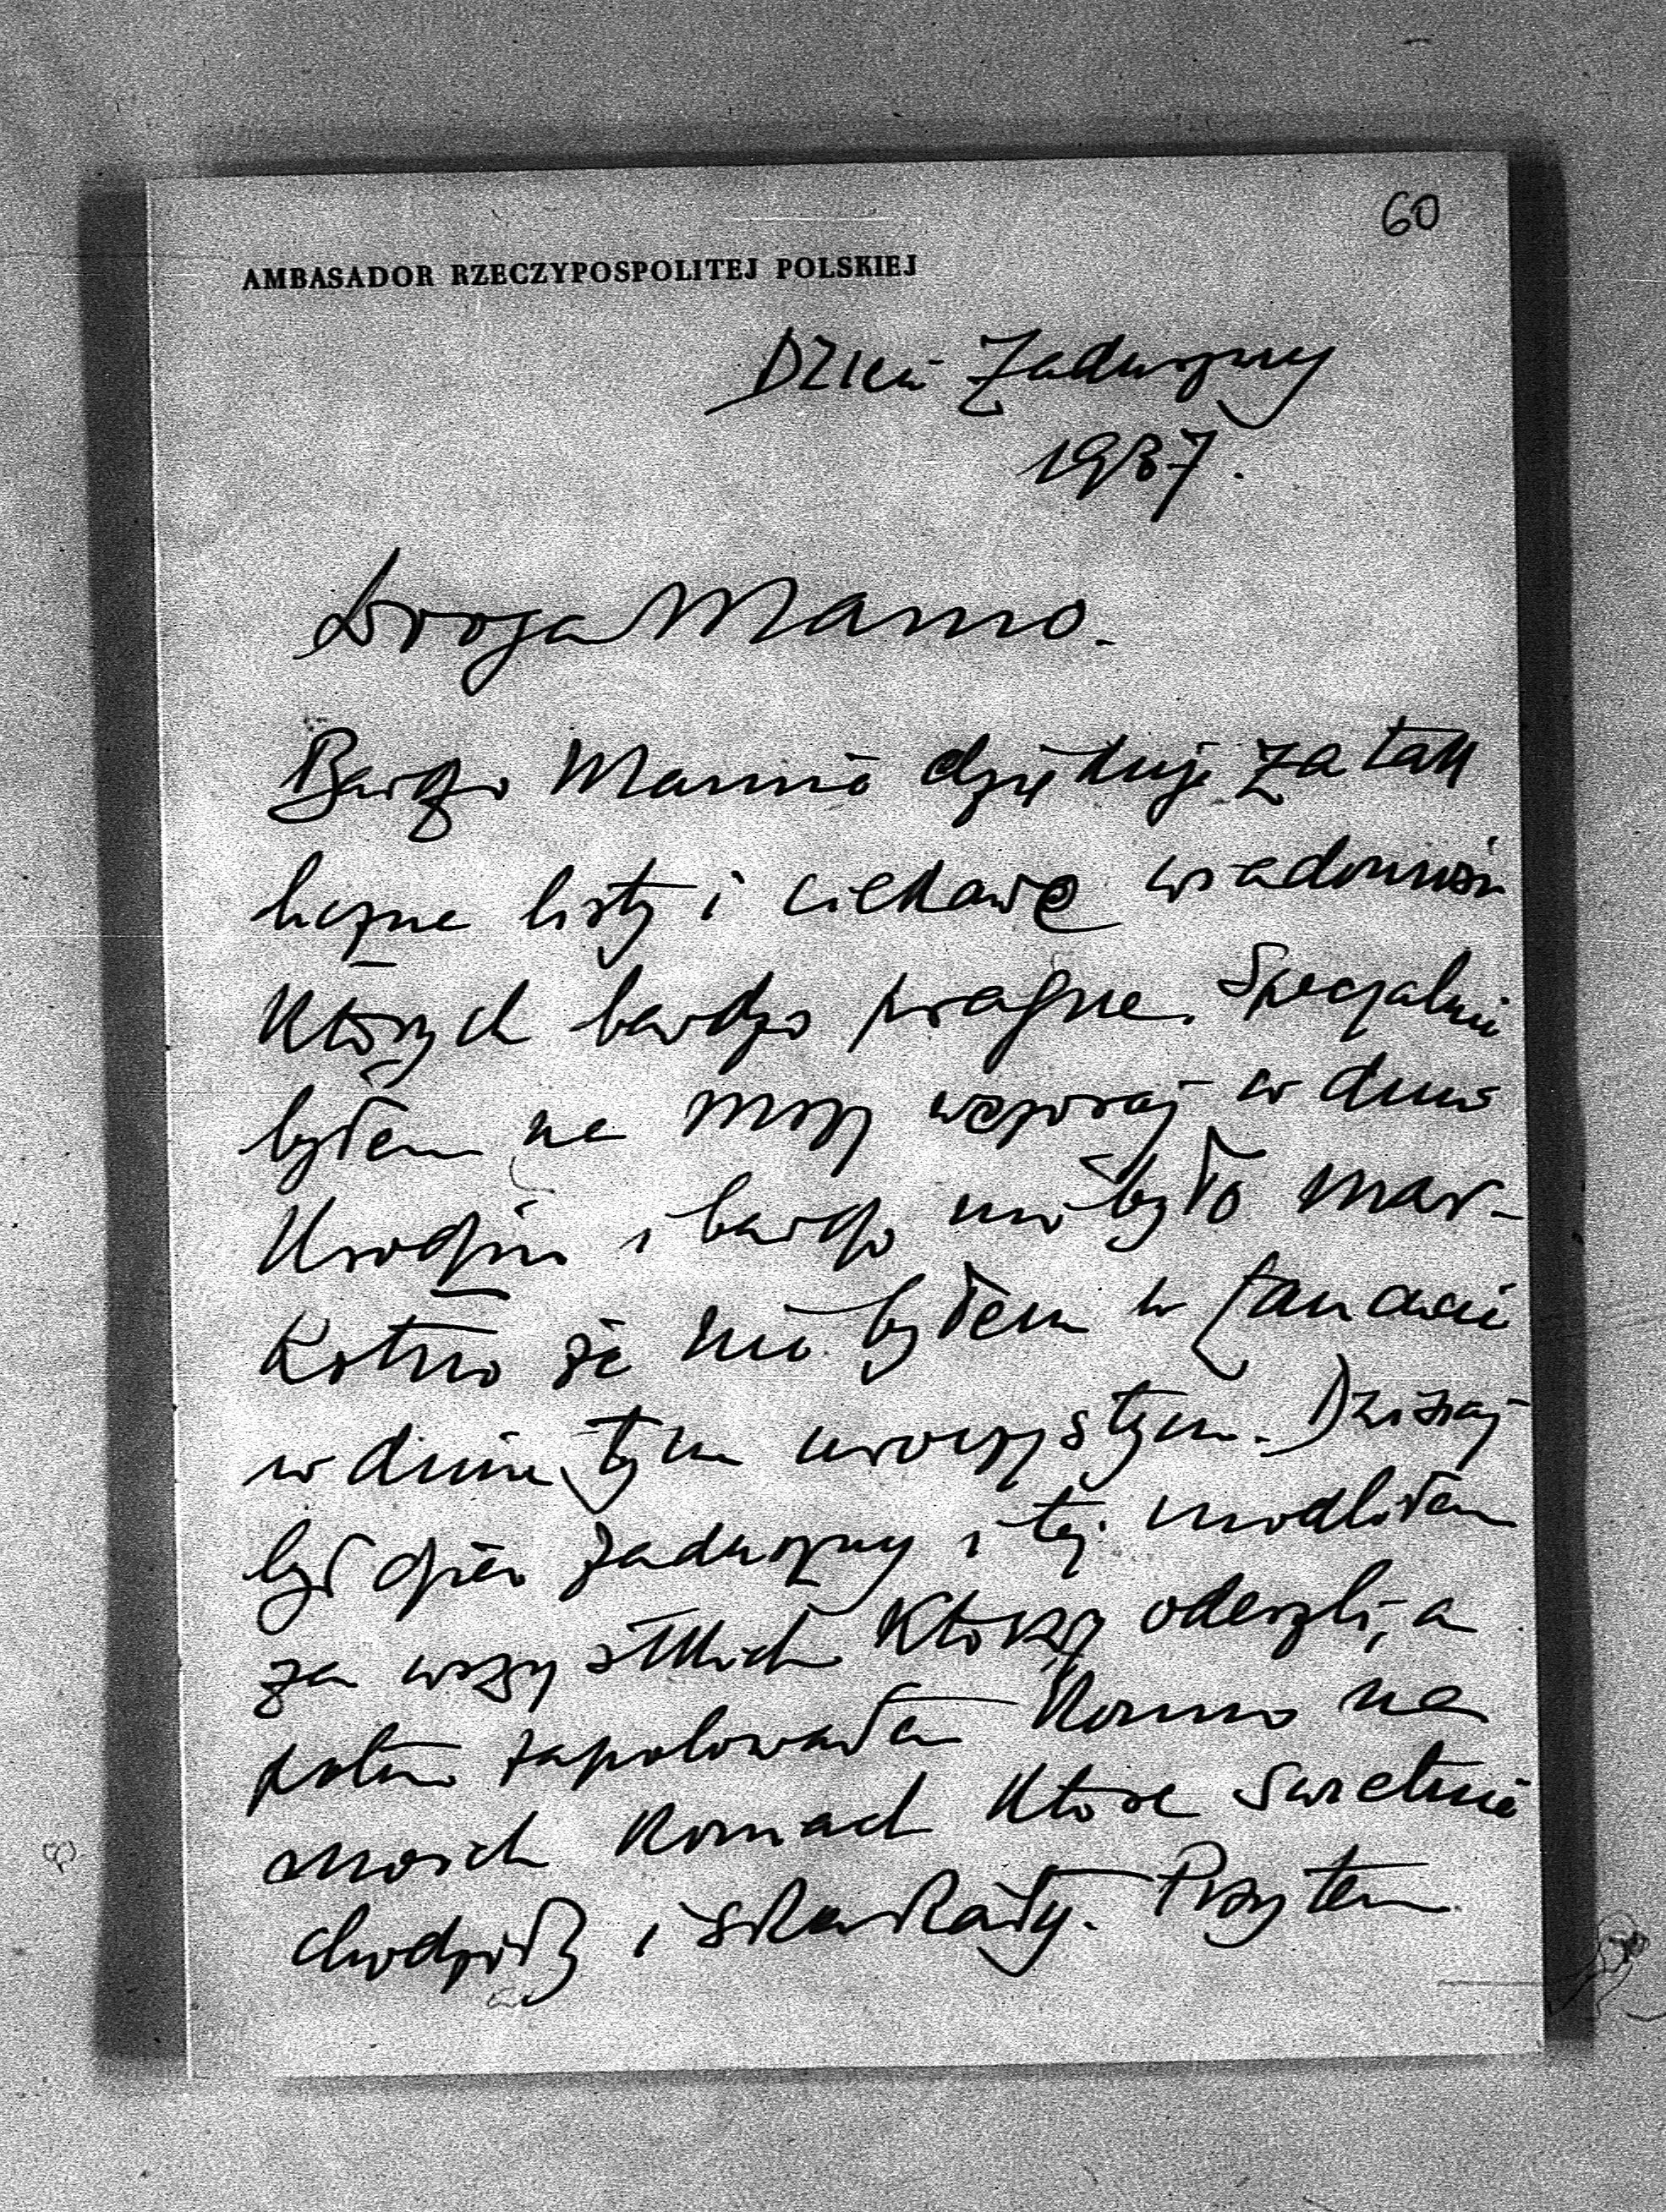 60
AMBASADOR RZECZYPOSPOLITEJ POLSKIEJ
Dzień Zaduszny
1937.
Droga Mamo.
Bardzo Mamie dziękuję za tak
liczne listy i ciekawe wiadomości
których bardzo pragnę. Specjalnie
byłem na mszy wczoraj w dniu
Urodzin i bardzo mi było mar-
kotno że nie byłem w Łańcucie
w dniu tym uroczystym. Dzisiaj
był dzień zaduszny i też modliłem
za wszystkich którzy odeszli, a
potem zapolowałem konno na
moich koniach które świetnie
chodziły i skakały. Przytem